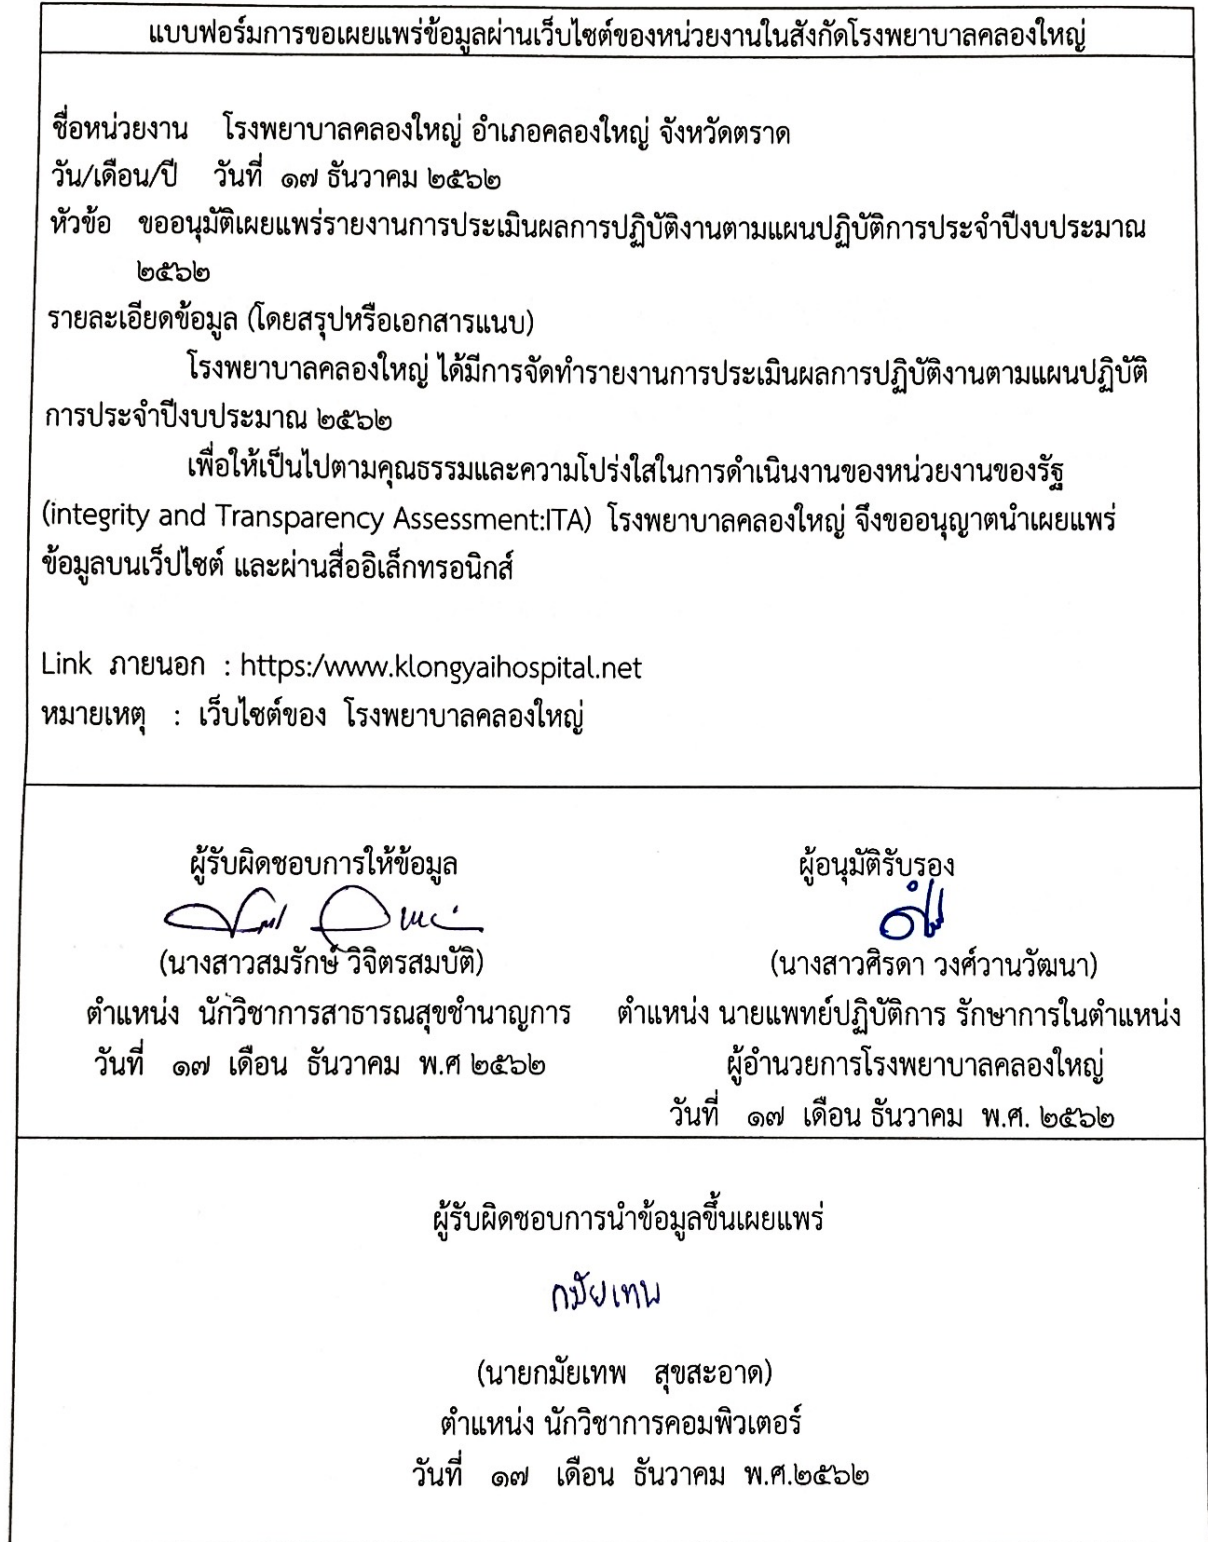 แบบฟอร์มการขอเผยแพร่ข้อมูลผ่านเว็บไซต์ของหน่วยงานในสังกัดโรงพยาบาลคลองใหญ่
ชื่อหน่วยงาน โรงพยาบาลคลองใหญ่ อำเภอคลองใหญ่ จังหวัดตราด
วัน/เดือน/ปี วันที่ ๑๗ ธันวาคม ๒๕๖๒
หัวข้อ ขออนุมัติเผยแพร่รายงานการประเมินผลการปฏิบัติงานตามแผนปฏิบัติการประจำปีงบประมาณ
๒๕๖๒
รายละเอียดข้อมูล (โดยสรุปหรือเอกสารแนบ)
โรงพยาบาลคลองใหญ่ ได้มีการจัดทำรายงานการประเมินผลการปฏิบัติงานตามแผนปฏิบัติ
การประจำปีงบประมาณ ๒๕๖๒
เพื่อให้เป็นไปตามคุณธรรมและความโปร่งใสในการดำเนินงานของหน่วยงานของรัฐ
(integrity and Transparency Assessment:ITA) โรงพยาบาลคลองใหญ่ จึงขออนุญาตนำเผยแพร่
ข้อมูลบนเว็ปไซต์ และผ่านสื่ออิเล็กทรอนิกส์
Link ภายนอก : https:/www.klongyaihospital.net
หมายเหตุ : เว็บไซต์ของ โรงพยาบาลคลองใหญ่
ผู้รับผิดชอบการให้ข้อมูล
(นางสาวสมรักษ์ วิจิตรสมบัติ)
ตำแหน่ง นักวิชาการสาธารณสุขชำนาญการ
วันที่ ๑๗ เดือน ธันวาคม พ.ศ ๒๕๖๒
ผู้อนุมัติรับรอง
(นางสาวศิรดา วงศ์วานวัฒนา)
ตำแหน่ง นายแพทย์ปฏิบัติการ รักษาการในตำแหน่ง
ผู้อำนวยการโรงพยาบาลคลองใหญ่
วันที่ ๑๗ เดือน ธันวาคม พ.ศ. ๒๕๖๒
ผู้รับผิดชอบการนำข้อมูลขึ้นเผยแพร่
กมัยเทพ
(นายกมัยเทพ สุขสะอาด)
ตำแหน่ง นักวิชาการคอมพิวเตอร์
วันที่ ๑๗ เดือน ธันวาคม พ.ศ.๒๕๖๒